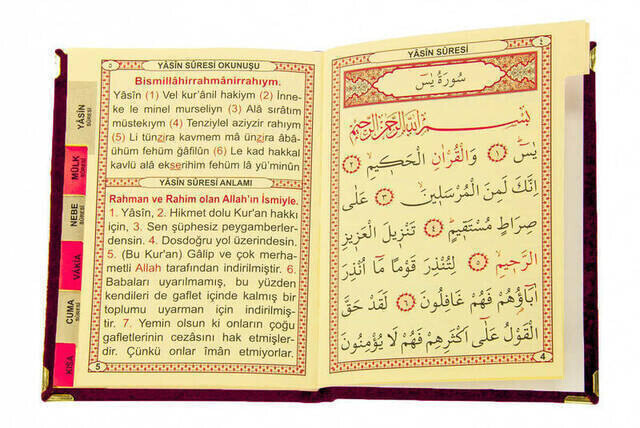 YÂSİN
SÛRESİ
MÜLK
SÛRESİ
NEBE
SÛRESİ
VÂKIA
CUMA
SÛRESİ
KISA
٥
YÂSÎN SÛRESİ OKUNUŞU
Bismillâhirrahmânirrahıym.
Yâsîn (1) Vel kur'ânil hakiym (2) İnne-
ke le minel murseliyn (3) Alâ sırâtım
müstekıym (4) Tenziylel aziyzir rahıym
(5) Li tünzira kavmem mâ ünzira âbâ-
ühüm fehüm ğâfilûn (6) Le kad hakkal
kavlü alâ ekserihim fehüm lâ yü'minûn
YÂSÎN SÛRESİ ANLAMI
Rahman ve Rahim olan Allah'ın İsmiyle.
1. Yâsîn, 2. Hikmet dolu Kur'an hakkı
için, 3. Sen şüphesiz peygamberler-
densin. 4. Dosdoğru yol üzerindesin.
5. (Bu Kur'an) Gâlip ve çok merha-
metli Allah tarafından indirilmiştir. 6.
Babaları uyarılmamış, bu yüzden
kendileri de gaflet içinde kalmış bir
toplumu uyarman için indirilmiş-
tir. 7. Yemin olsun ki onların çoğu
gafletlerinin cezasını hak etmişler-
dir. Çünkü onlar îmân etmiyorlar.
5
YÂSÎN SÛRESİ
٤
سُورَةُ يٰسۤ
بِسْمِ اللّٰهِ الرَّحْمٰنِ الرَّحِيمِ
يٰسۤ ﴿١﴾ وَالْقُرْاٰنِ الْحَكِيمِ ﴿٢﴾
اِنَّكَ لَمِنَ الْمُرْسَلِينَ ﴿٣﴾ عَلٰى
صِرَاطٍ مُسْتَقِيمٍ ﴿٤﴾ تَنْزِيلَ الْعَزِيزِ
الرَّحِيمِ ﴿٥﴾ لِتُنْذِرَ قَوْمًا مَٓا اُنْذِرَ
اٰبَٓاؤُهُمْ فَهُمْ غَافِلُونَ ﴿٦﴾ لَقَدْ حَقَّ
الْقَوْلُ عَلٰٓى اَكْثَرِهِمْ فَهُمْ لَا يُؤْمِنُونَ
4